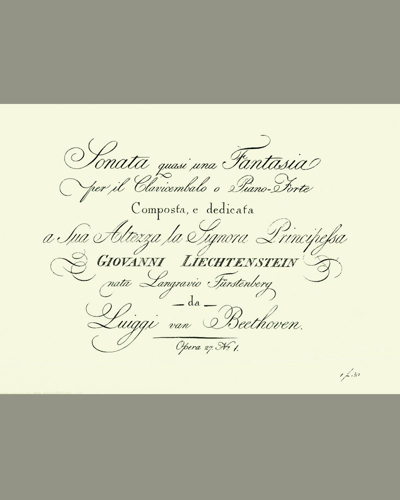 Sonata quasi una Fantasia
per il Clavicembalo o Piano-Forte
Composta, e dedicata
a Sua Altezza la Signora Principessa
GIOVANNI LIECHTENSTEIN
nata Langravio Fürstenberg
— da —
Luiggi van Beethoven.
Opera 27. No 1.